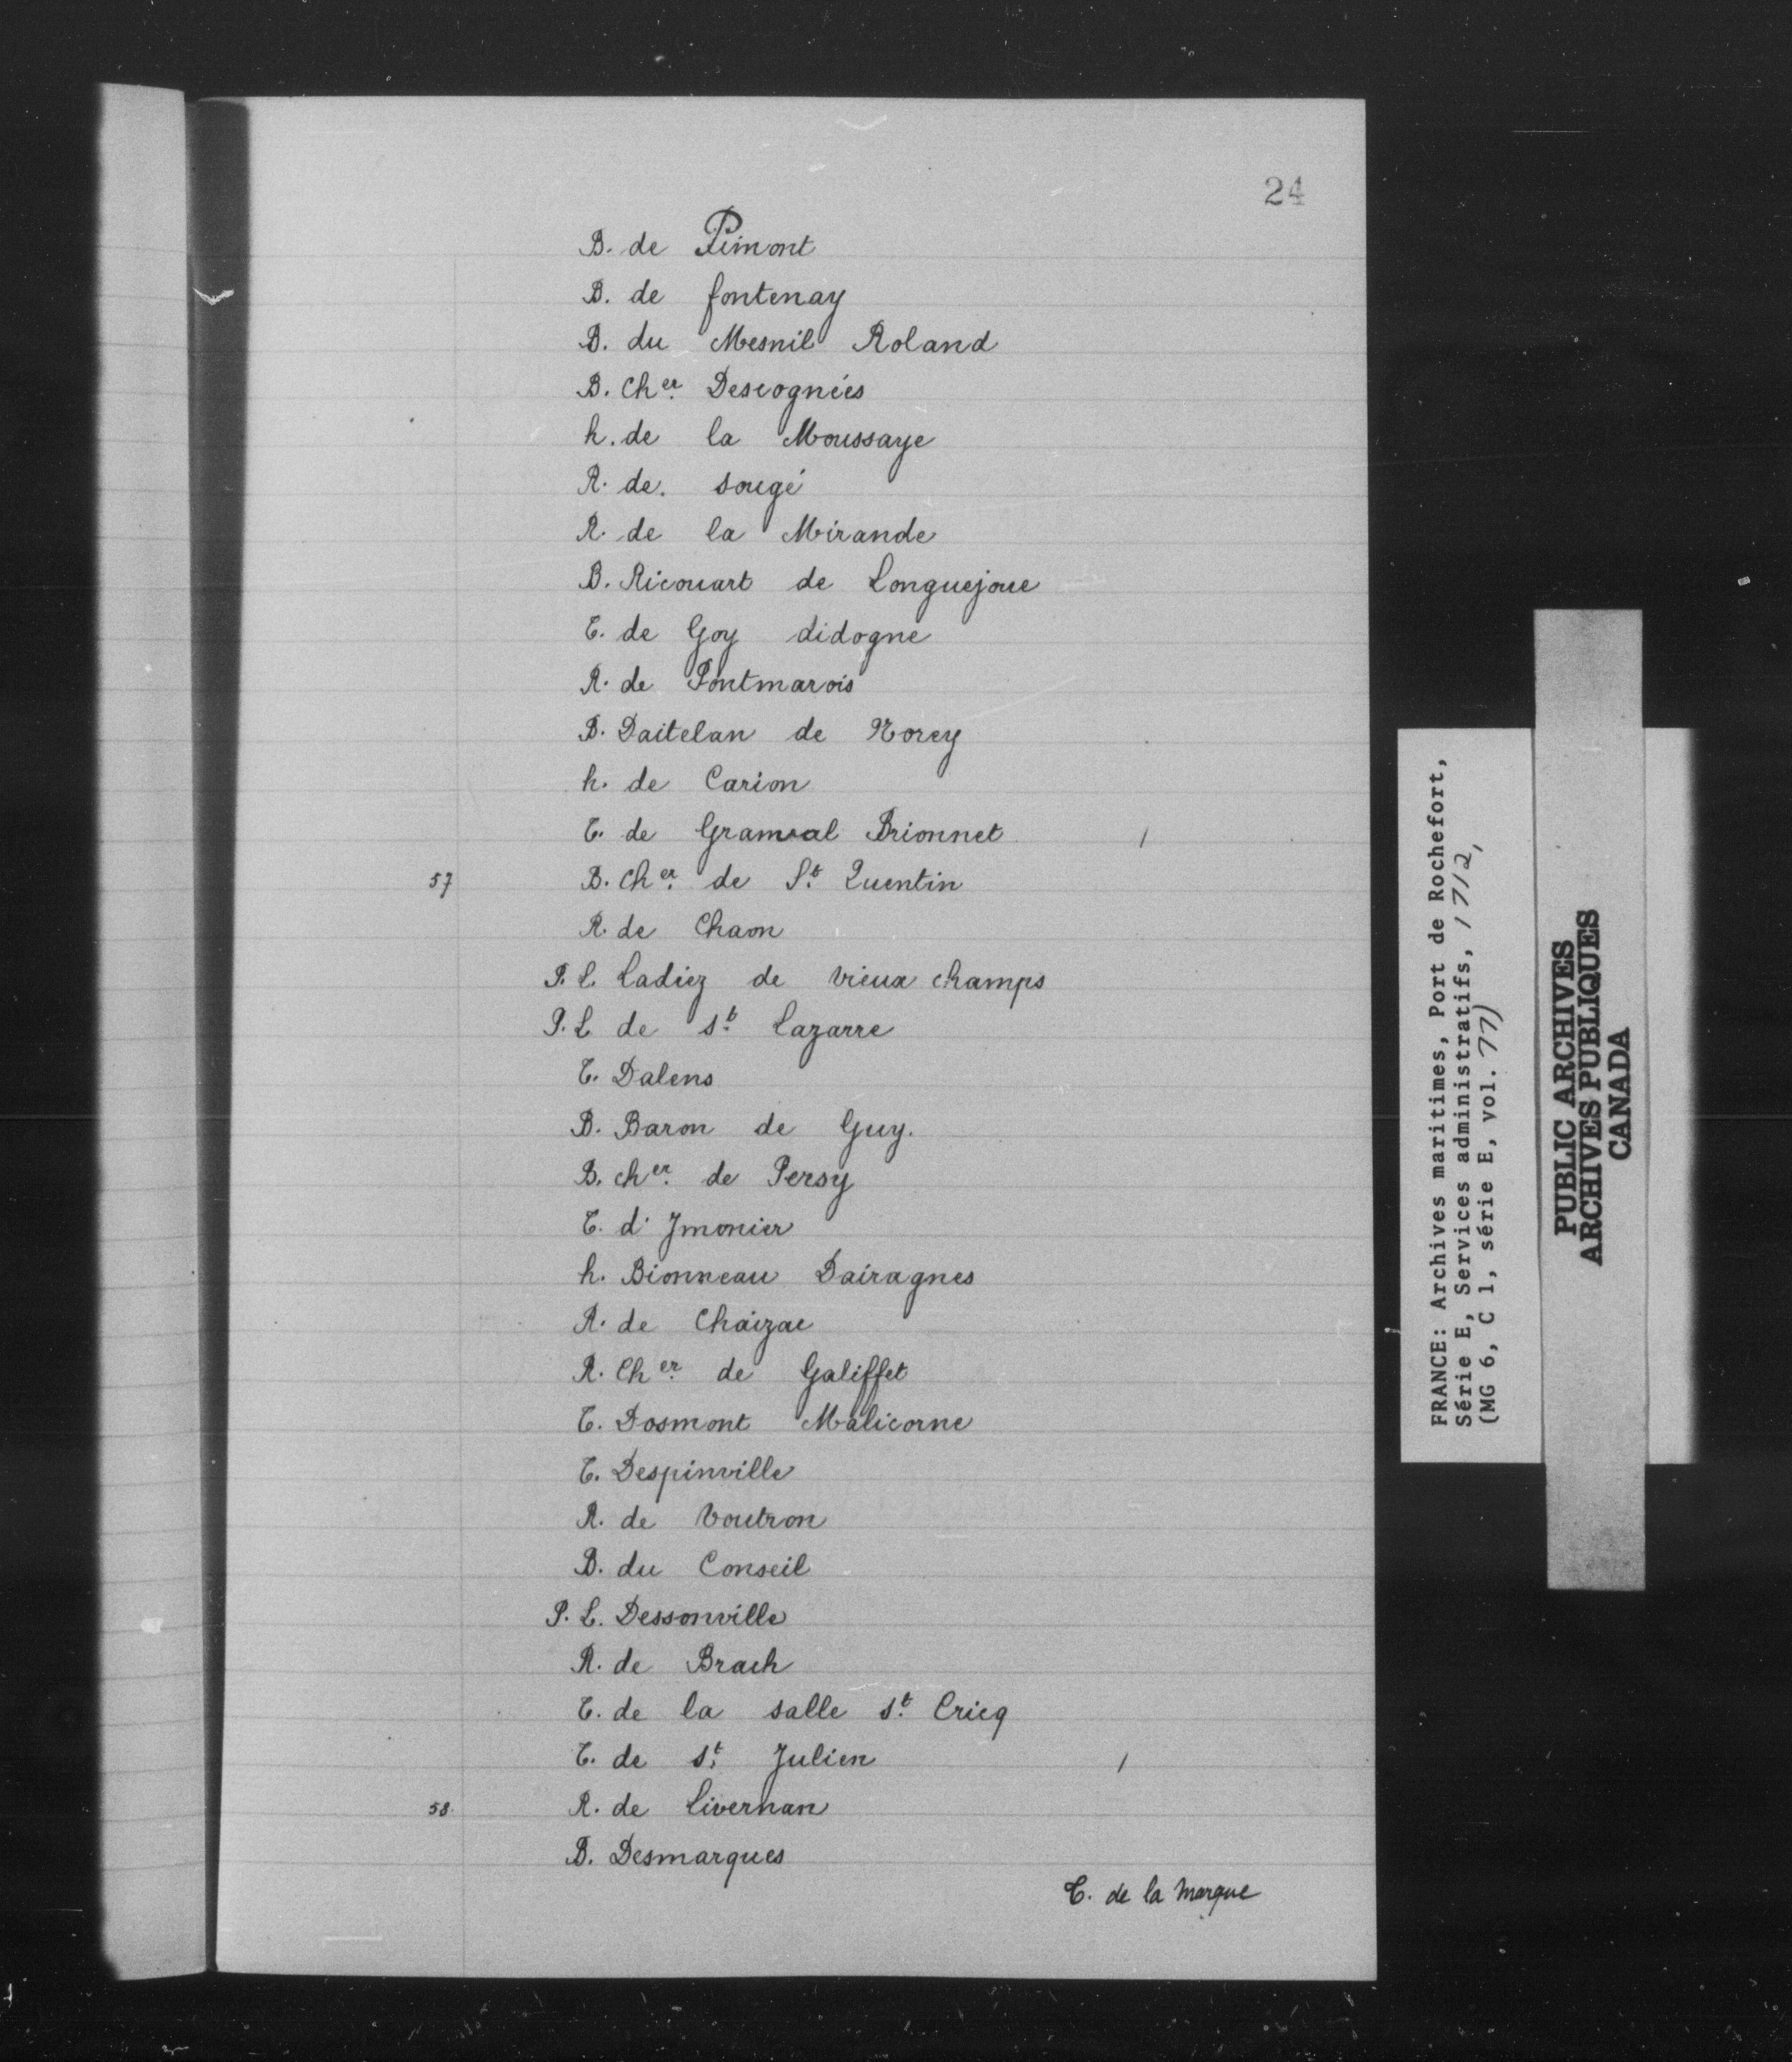 24
B. de Pimont
B. de fontenay
B. du Mesnil Roland
B. Cher. Descognées
h. de la Moussaye
R. de. Sougé
R. de la Mirande
B. Ricouart de Longuejoue
T. de Goy didogne
R. de Pontmarois
B. Daitelan de Norey
h. de Carion
T. de Gramval Brionnet /
57 B. Cher. de St. Quentin
R. de Chaon
P. L. Ladiez de vieux champs
P. L de St. Lazarre
T. Dalens
B. Baron de Guy.
B. cher. de Persy
T. d'Jmonier
h. Bionneau Dairagnes
R. de Chaizac
R. Cher. de Galiffet
T. Dosmont Malicorne
T. Despinville
R. de Voutron
B. du Conseil
P. L. Dessonville
R. de Brach
T. de la salle St. Cricq
T. de St. Julien /
58 R. de Livernan
B. Desmarques
T. de la Marque
FRANCE: Archives maritimes, Port de Rochefort,
Série E, Services administratifs, 1712,
(MG 6, C 1, série E, vol. 77)
PUBLIC ARCHIVES
ARCHIVES PUBLIQUES
CANADA